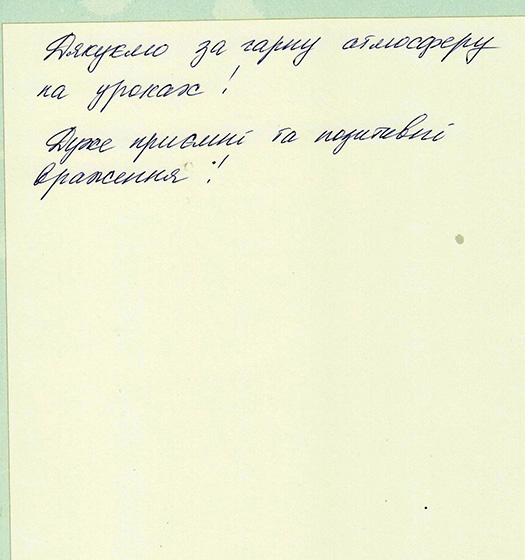 Дякуємо за гарну атмосферу
на уроках!
Дуже приємні та позитивні
враження!